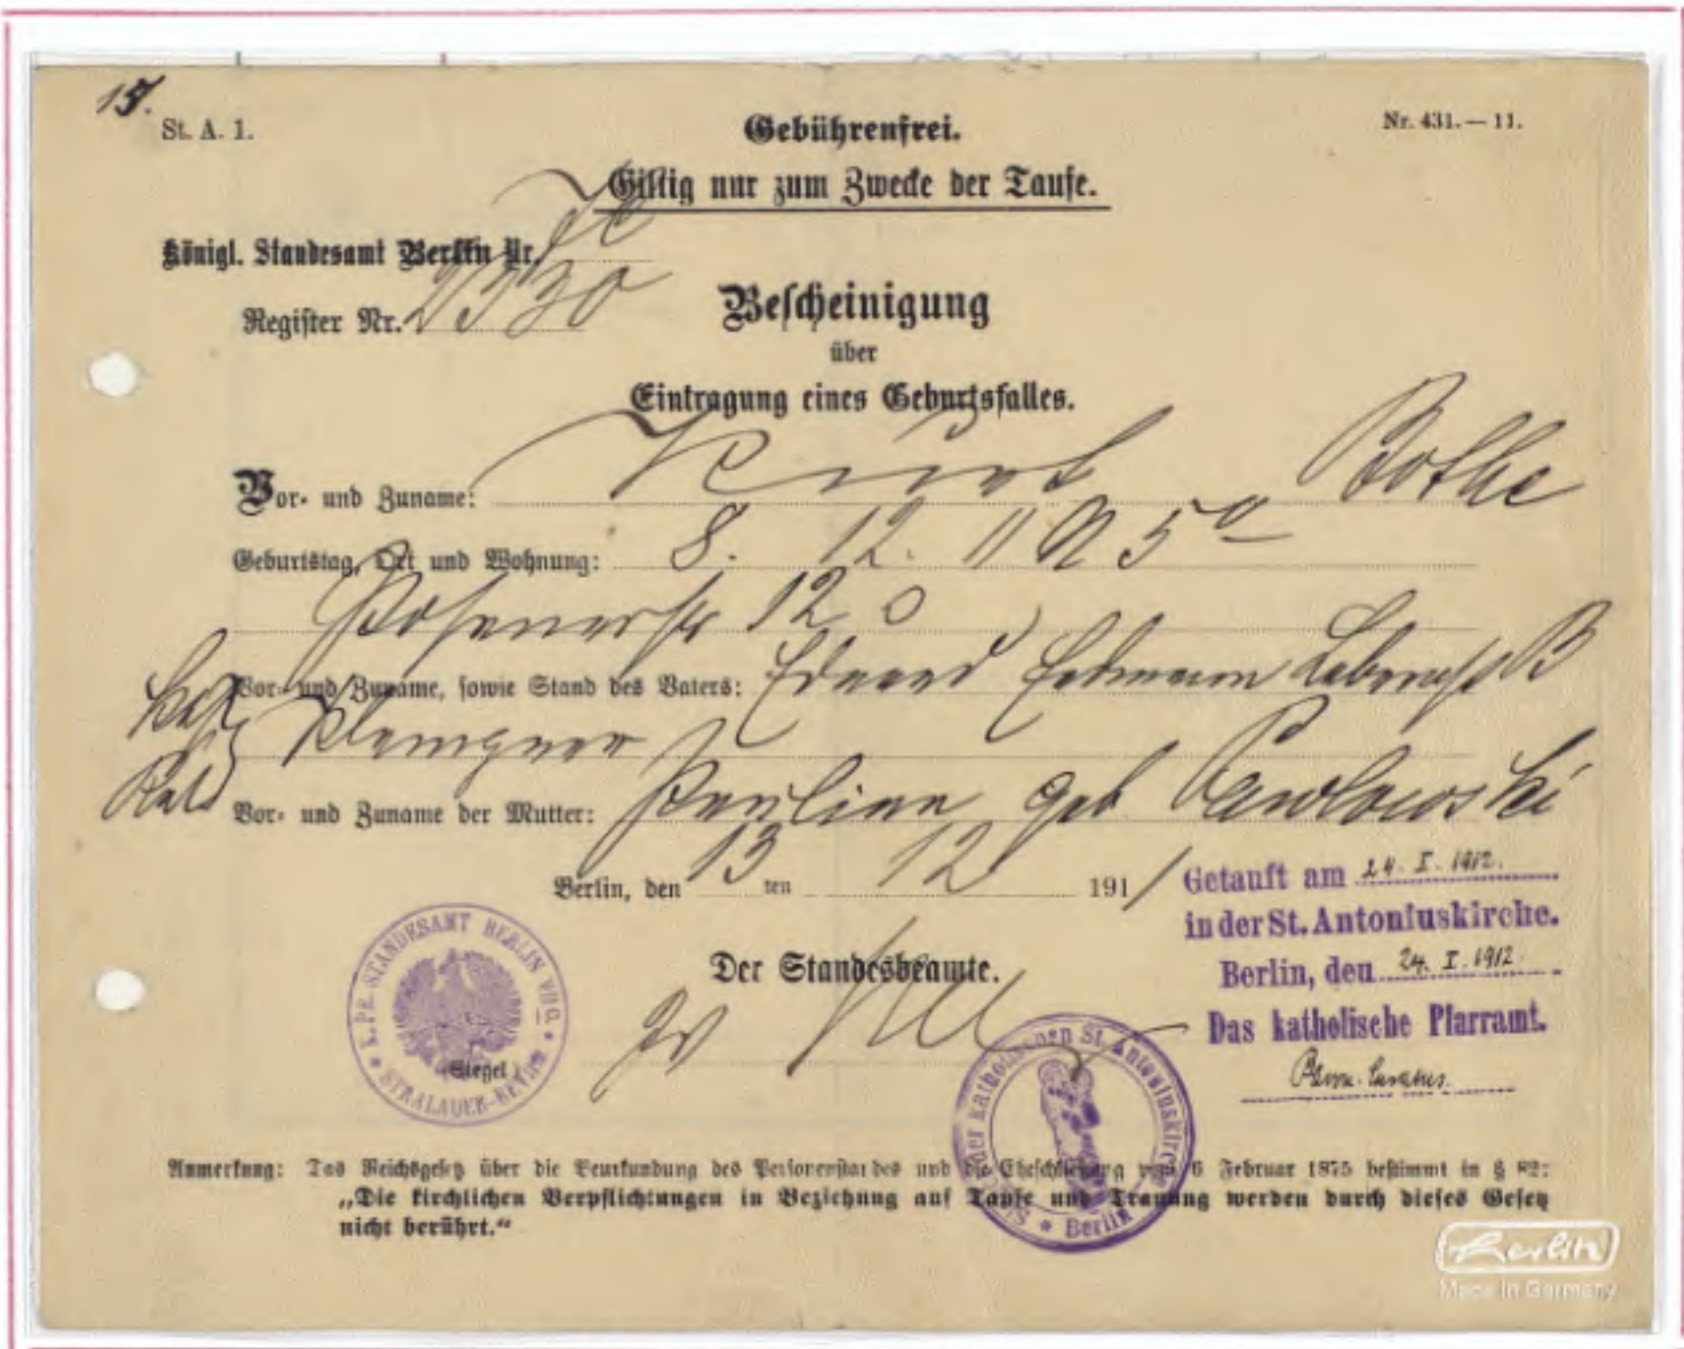 15.
St. A. 1.
Gebührenfrei.
Nr. 431. — 11.
Giltig nur zum Zwecke der Taufe.
Königl. Standesamt Berlin Nr.
Register Nr. 2330
Bescheinigung
über
Eintragung eines Geburtsfalles.
Vor- und Zuname: Kurt Bothe
Geburtstag, Ort und Wohnung: 8. 12. 11 N 5
Posenerstr 12
Vor- und Zuname, sowie Stand des Vaters: Eduard Erdmann B
Klempner
Vor- und Zuname der Mutter: Pauline geb Pawlowski
Berlin, den 13 ten 12 1911
Getauft am 24. I. 1912.
in der St. Antoniuskirche.
Berlin, den 24. I. 1912.
Das katholische Pfarramt.
Der Standesbeamte.
K. PR. STANDESAMT BERLIN VII
STRALAUER-REV.
(Siegel)
der katholischen St. Antoniuskirche
Berlin
Anmerkung: Das Reichsgesetz über die Beurkundung des Personenstandes und die Eheschließung vom 6 Februar 1875 bestimmt in § 82:
„Die kirchlichen Verpflichtungen in Beziehung auf Taufe und Trauung werden durch dieses Gesetz
nicht berührt.“
Herlitz
Made in Germany